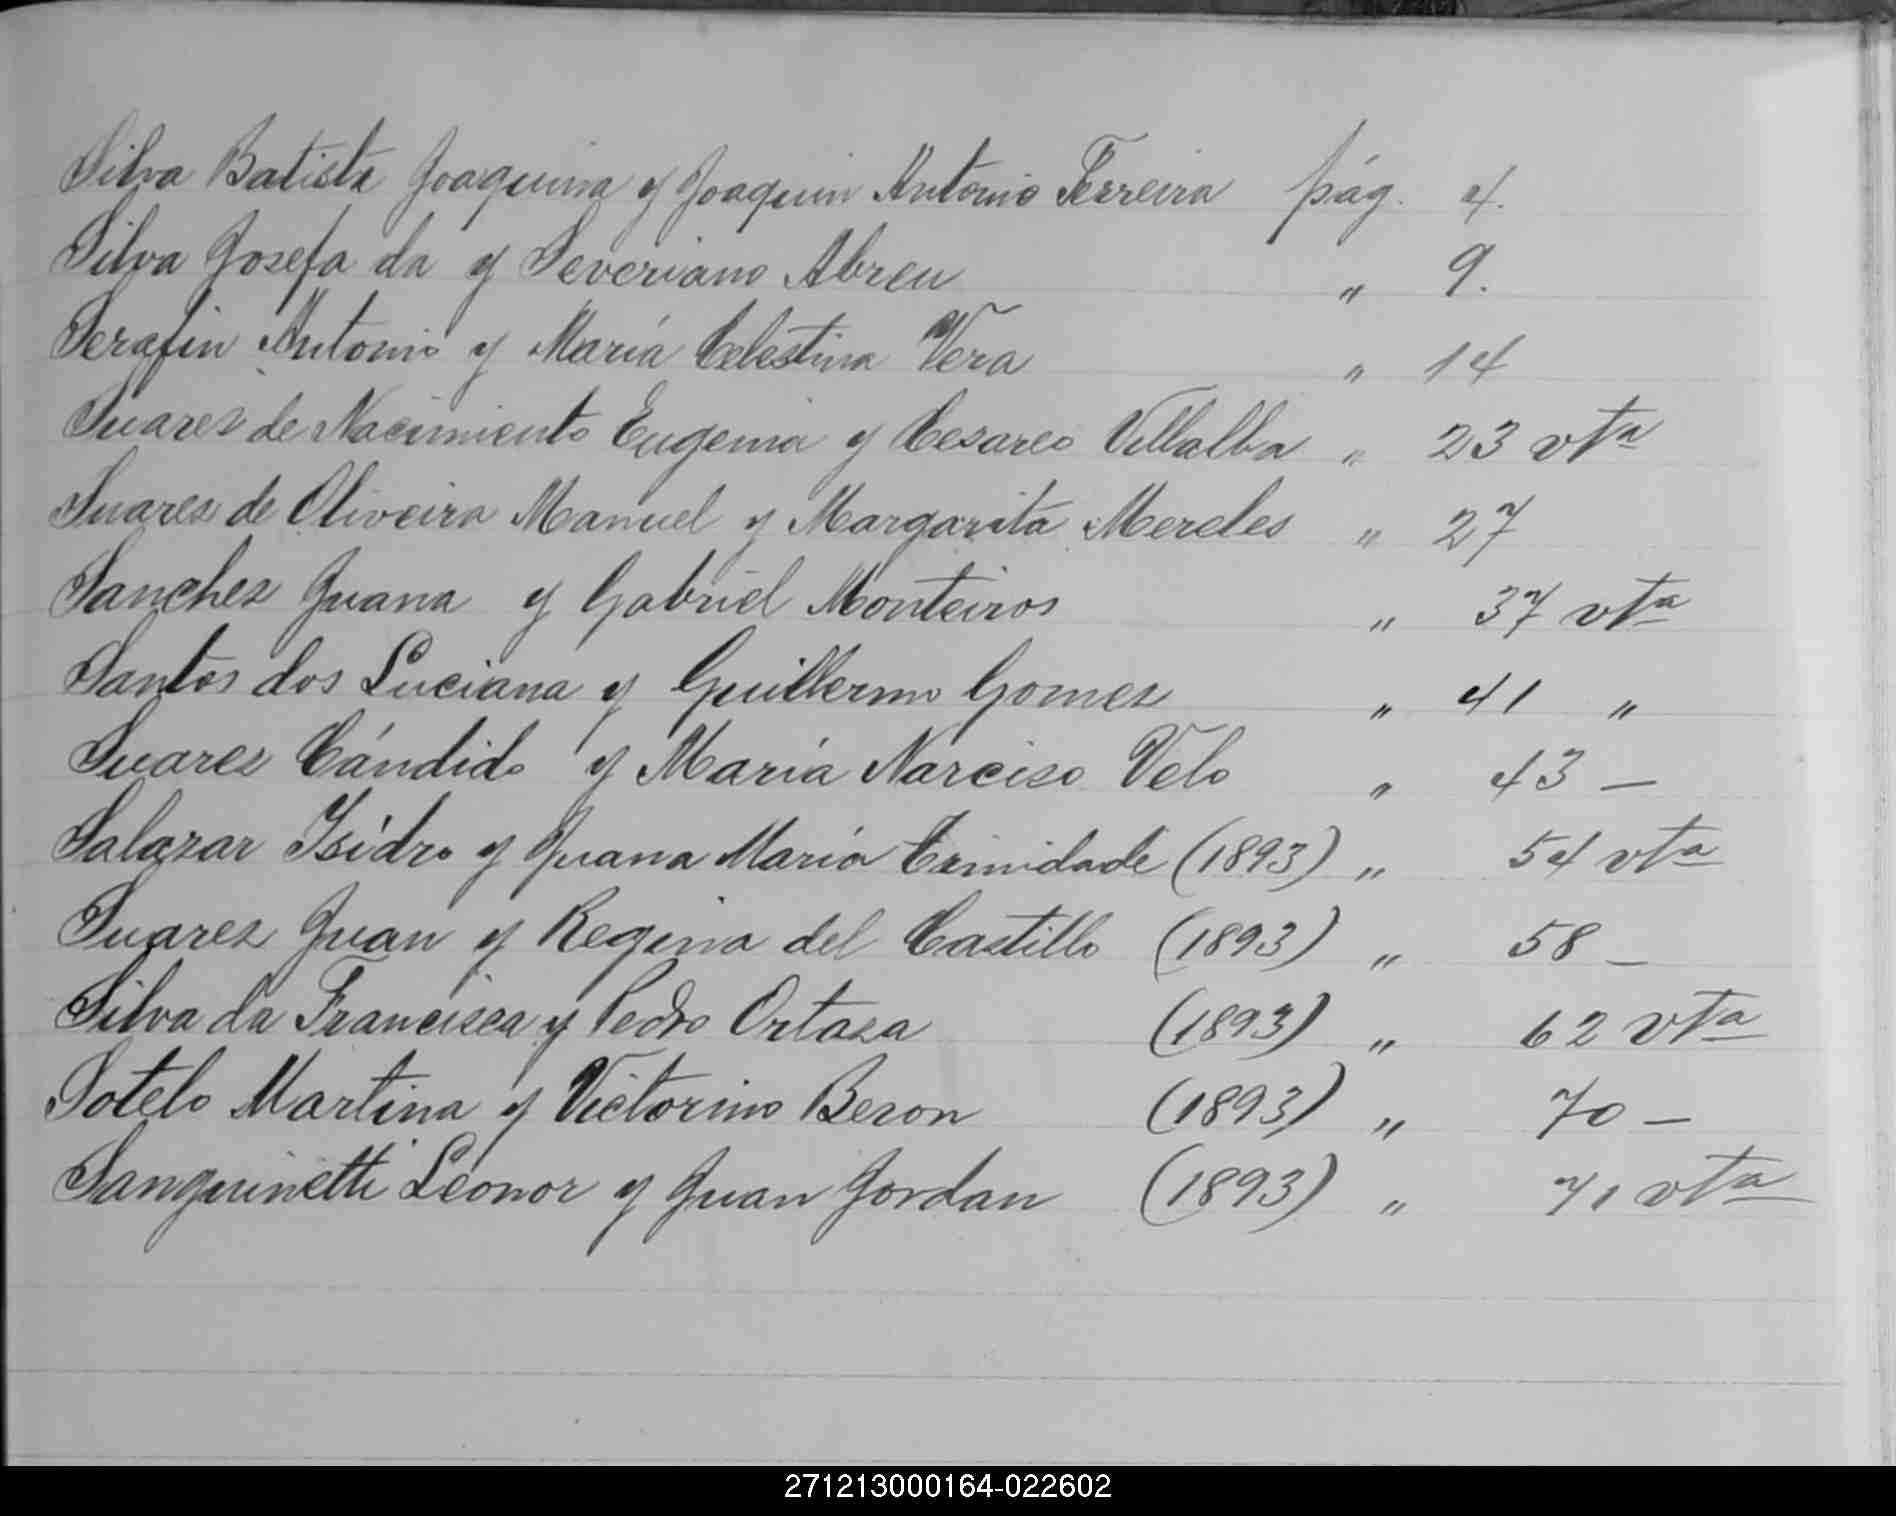 Silva Batista Joaquina y Joaquin Antonio Ferreira pág. 4.
Silva Josefa da y Severiano Abreu " 9.
Serafin Antonio y María Celestina Vera " 14
Suares de Nacimiento Eugenia y Cesareo Villalba " 23 vta
Suares de Oliveira Manuel y Margarita Mereles " 27
Sanchez Juana y Gabriel Monteiros " 37 vta
Santos dos Luciana y Guillermo Gomez " 41 "
Suarez Cándido y María Narciso Velo " 43 —
Salazar Isidro y Juana María Trinidade (1893) " 54 vta
Suarez Juan y Regina del Castillo (1893) " 58 —
Silva da Francisca y Pedro Ortasa (1893) " 62 vta
Sotelo Martina y Victorino Beron (1893) " 70 —
Sanguinetti Leonor y Juan Jordan (1893) " 71 vta
271213000164-022602